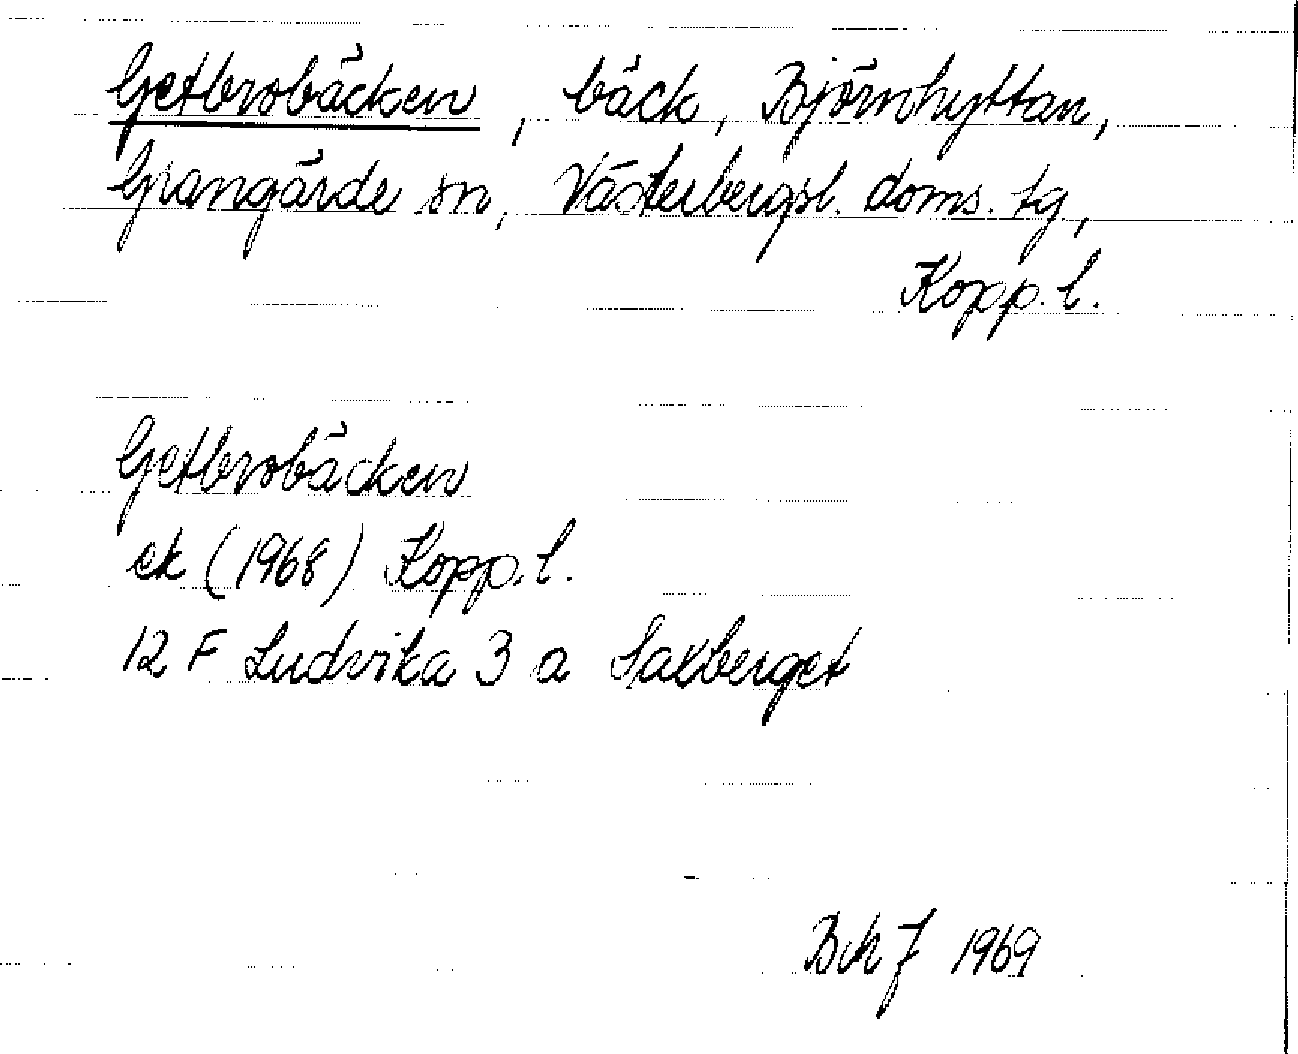 Getbrobäcken, bäck, Björnhyttan,
Grangärde sn, Västerbergsl. doms. tg,
Kopp. l.
Getbrobäcken
ek (1968) Kopp. l.
12 F Ludvika 3 a Saxberget
1969